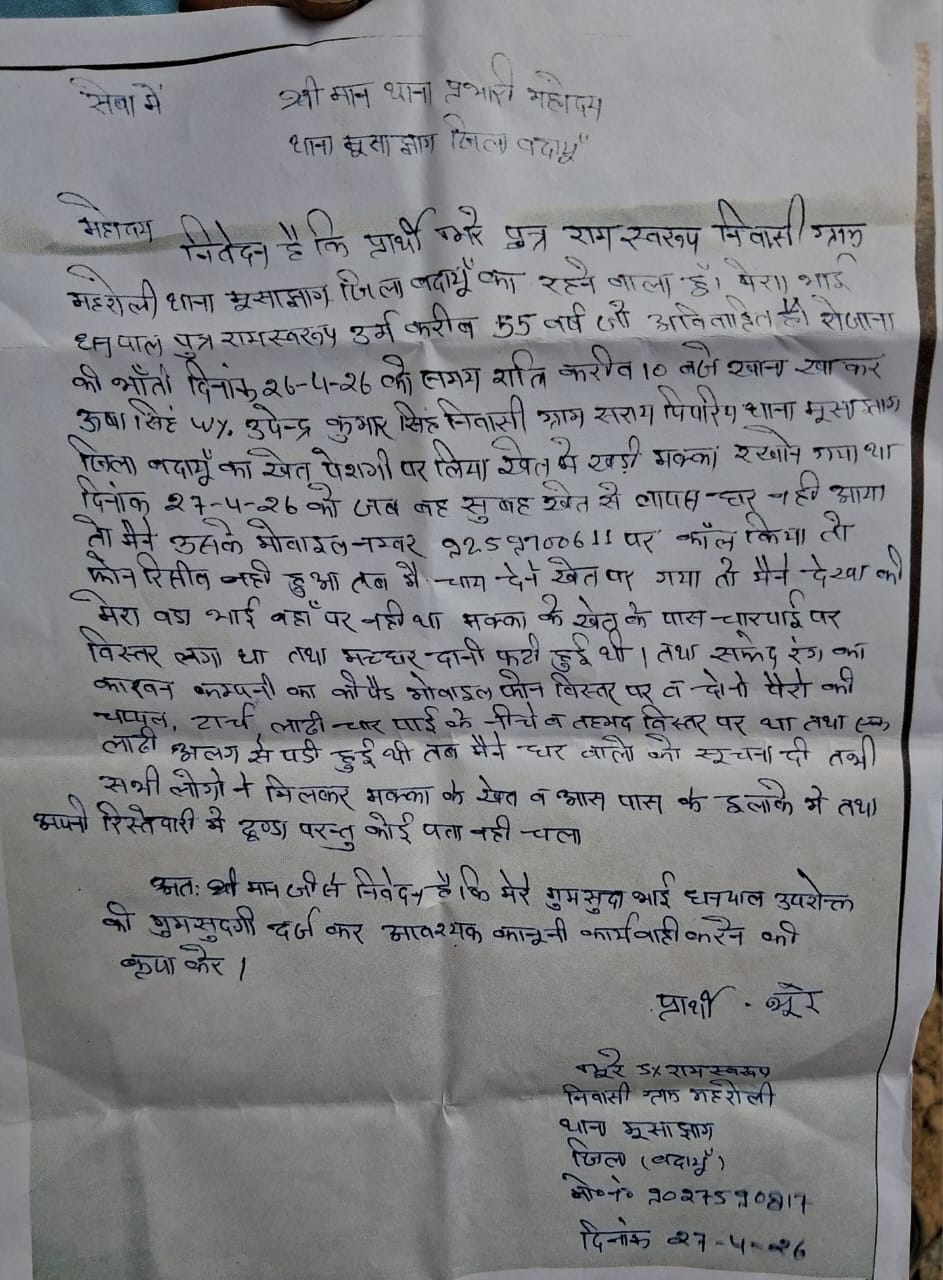 सेवा में श्री मान थाना प्रभारी महोदय
थाना मूसाझाग जिला बदायूँ
महोदय
निवेदन है कि प्रार्थी भूरे पुत्र राम स्वरूप निवासी ग्राम
महरोली थाना मूसाझाग जिला बदायूँ का रहने वाला हूँ। मेरा भाई
धनपाल पुत्र रामस्वरूप उर्म करीव 55 वर्ष जो अविवाहित है। रोजाना
की भाँती दिनांक 26-4-26 को समय रात्रि करीव 10 बजे खाना खाकर
ऊषा सिंह w/o उपेन्द्र कुमार सिंह निवासी ग्राम सराय पिपरिया थाना मूसाझाग
जिला बदायूँ का खेत पेशगी पर लिया खेत में खड़ी मक्का रखाने गया था
दिनांक 27-4-26 को जब वह सुबह खेत से वापस घर नही आया
तो मैने उसके मोबाइल नम्बर 9259700611 पर कॉल किया तो
फोन रिसीव नही हुआ तब मै चाय देने खेत पर गया तो मैने देखा की
मेरा वडा भाई वहाँ पर नही था मक्का के खेत के पास चारपाई पर
विस्तर लगा था तथा मच्छर दानी फटी हुई थी। तथा सफेद रंग का
कारवन कम्पनी का कीपैड मोवाइल फोन विस्तर पर व दोनो पैरो की
चप्पल, टार्च लाठी चार पाई के नीचे व तहमद विस्तर पर था तथा एक
लाठी अलग से पडी हुई थी तब मैने घर वालो को सूचना दी तभी
सभी लोगो ने मिलकर मक्का के खेत व आस पास के इलाके मे तथा
अपनी रिस्तेदारी मे ढूण्डा परन्तु कोई पता नही चला
अतः श्री मान जी से निवेदन है कि मेरे गुमसुदा भाई धनपाल उपरोक्त
की गुमसुदगी दर्ज कर आवश्यक कानूनी कार्यवाही करने की
कृपा करे।
प्रार्थी - भूरे
भूरे S/o रामस्वरूप
निवासी ग्राम महरोली
थाना मूसाझाग
जिला (बदायूँ)
मो० नं० 9027590817
दिनांक 27-4-26